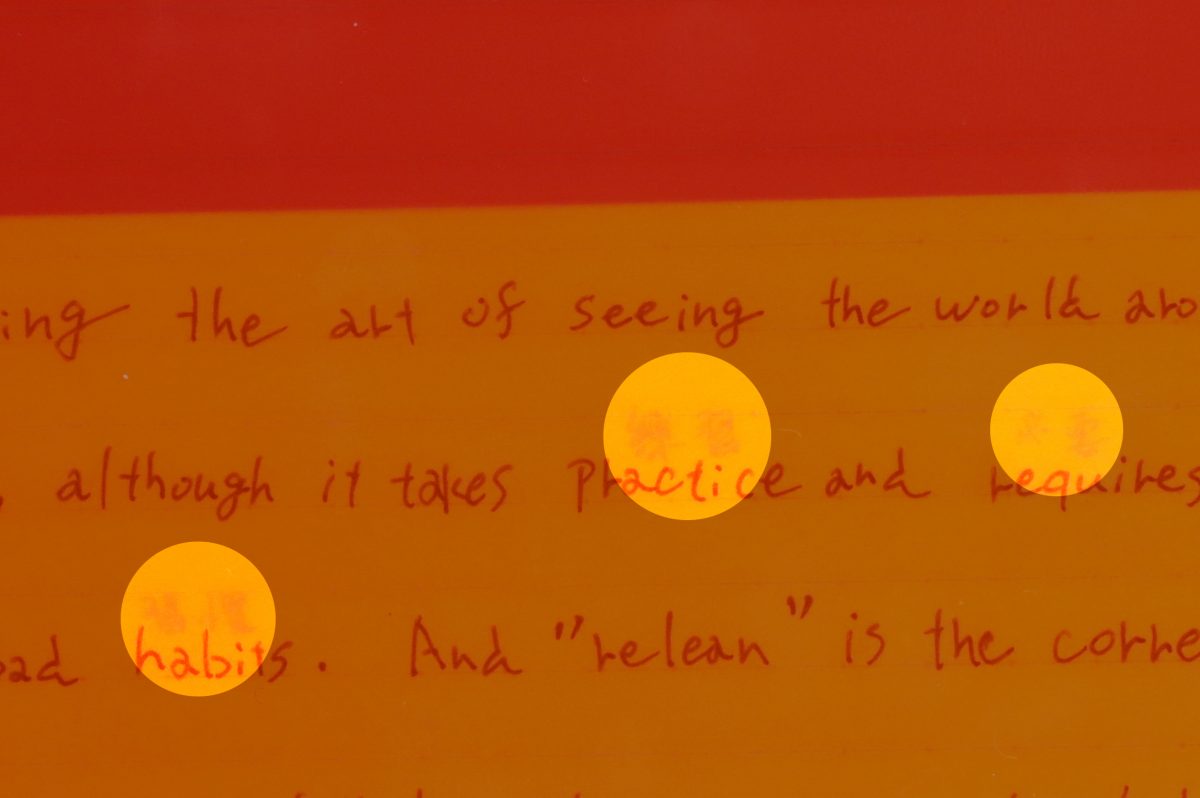 ing the art of seeing the world aro
, although it takes practice and requires
bad habits. And "relean" is the corre